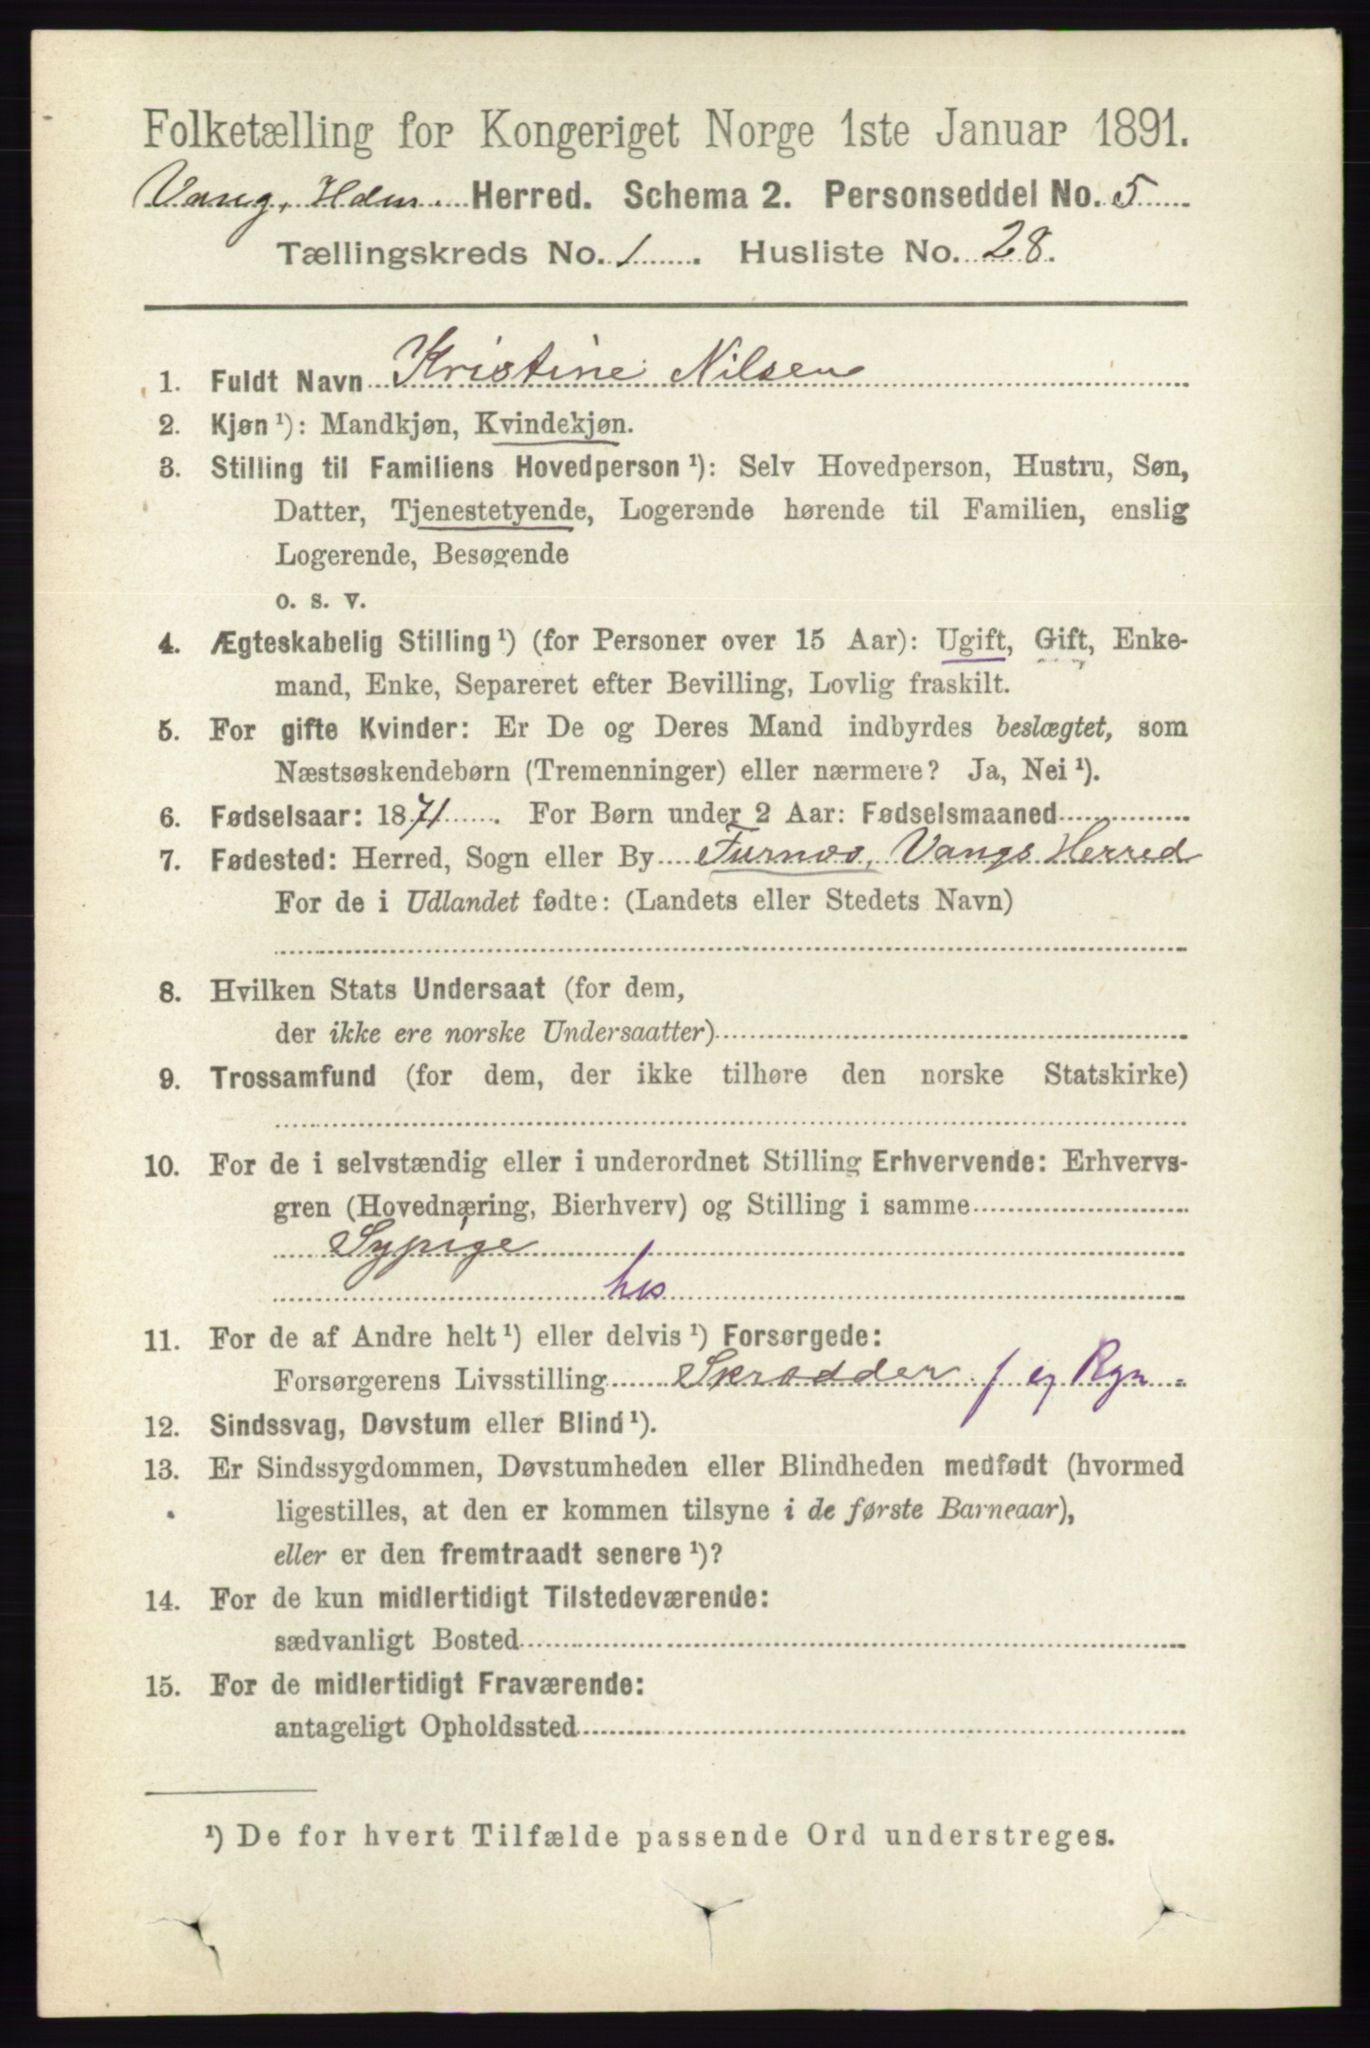 Folketælling for Kongeriget Norge 1ste Januar 1891.
Vang, Hdm. Herred. Schema 2. Personseddel No. 5
Tællingskreds No. 1. Husliste No. 28.
1. Fuldt Navn Kristine Nilsen
2. Kjøn ¹): Mandkjøn, Kvindekjøn.
3. Stilling til Familiens Hovedperson ¹): Selv Hovedperson, Hustru, Søn,
Datter, Tjenestetyende, Logerende hørende til Familien, enslig
Logerende, Besøgende
o. s. v.
4. Ægteskabelig Stilling ¹) (for Personer over 15 Aar): Ugift, Gift, Enke-
mand, Enke, Separeret efter Bevilling, Lovlig fraskilt.
5. For gifte Kvinder: Er De og Deres Mand indbyrdes beslægtet, som
Næstsøskendebørn (Tremenninger) eller nærmere? Ja, Nei ¹).
6. Fødselsaar: 1871. For Børn under 2 Aar: Fødselsmaaned
7. Fødested: Herred, Sogn eller By Furnæs, Vangs Herred
For de i Udlandet fødte: (Landets eller Stedets Navn)
8. Hvilken Stats Undersaat (for dem,
der ikke ere norske Undersaatter)
9. Trossamfund (for dem, der ikke tilhøre den norske Statskirke)
10. For de i selvstændig eller i underordnet Stilling Erhvervende: Erhvervs-
gren (Hovednæring, Bierhverv) og Stilling i samme
Sypige
hos
11. For de af Andre helt ¹) eller delvis ¹) Forsørgede:
Forsørgerens Livsstilling Skrædder f eg Rgn.
12. Sindssvag, Døvstum eller Blind ¹).
13. Er Sindssygdommen, Døvstumheden eller Blindheden medfødt (hvormed
ligestilles, at den er kommen tilsyne i de første Barneaar),
eller er den fremtraadt senere ¹)?
14. For de kun midlertidigt Tilstedeværende:
sædvanligt Bosted
15. For de midlertidigt Fraværende:
antageligt Opholdssted
¹) De for hvert Tilfælde passende Ord understreges.